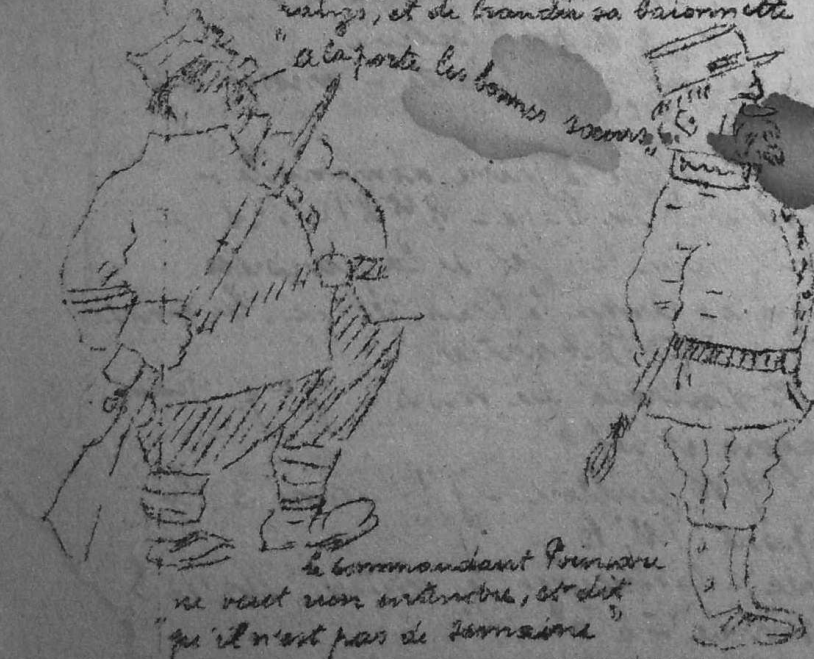 rangs, et de brandir sa baïonnette
"A la porte les bonnes sœurs"
le commandant Poincaré
ne veut rien entendre, et dit
"qu'il n'est pas de semaine"